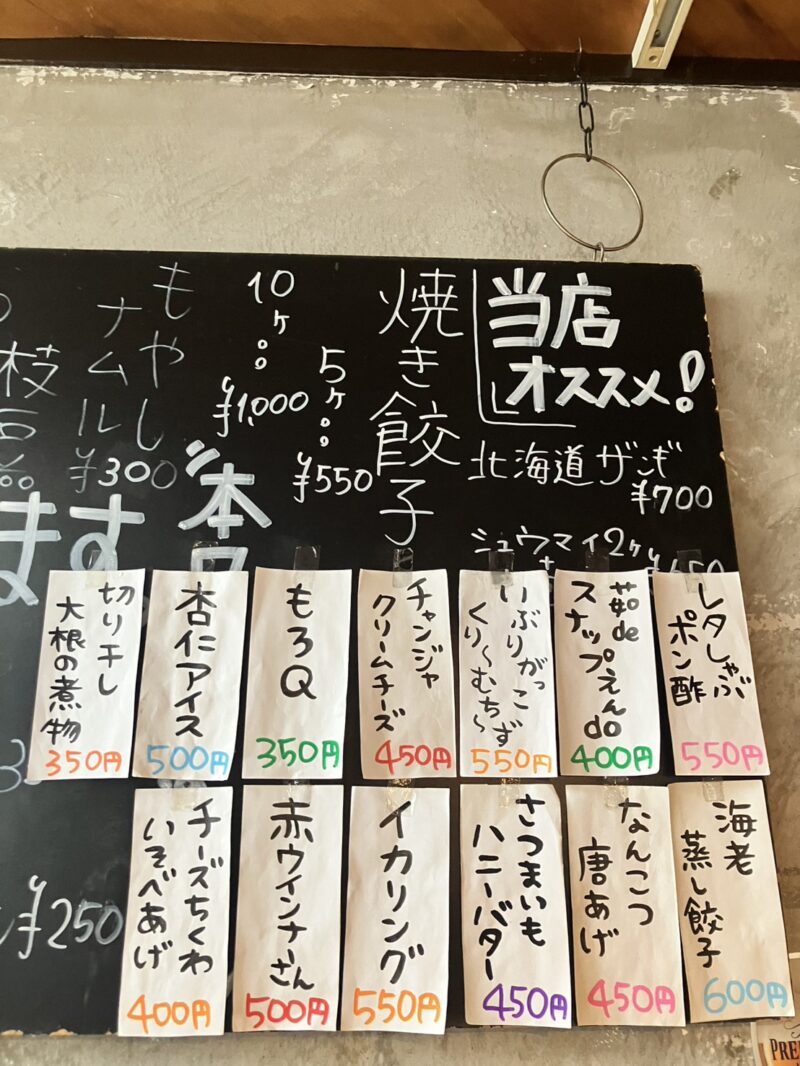 当店
オススメ!
北海道ザンギ
¥700
シュウマイ2ケ
焼き餃子
5ケ
¥550
10ケ
¥1,000
もやし
ナムル
¥300
枝豆
ます
本日
¥250
レタしゃぶ
ポン酢
550円
茹de
スナップえんdo
400円
いぶりがっこ
くり〜むち〜ず
550円
チャンジャ
クリームチーズ
450円
もろQ
350円
杏仁アイス
500円
切り干し
大根の煮物
350円
海老
蒸し餃子
600円
なんこつ
唐あげ
450円
さつまいも
ハニーバター
450円
イカリング
550円
赤ウインナーさん
500円
チーズちくわ
いそべあげ
400円